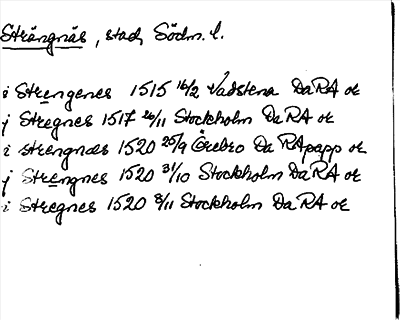 Strängnäs, stad, Södm. l.
i Strengenes 1515 16/2 Vadstena DaRA or
j Stregnes 1517 26/11 Stockholm DaRA or
i strengnæs 1520 25/9 Örebro DaRApapp or
j Strengnes 1520 31/10 Stockholm DaRA or
i Stregnes 1520 8/11 Stockholm DaRA or